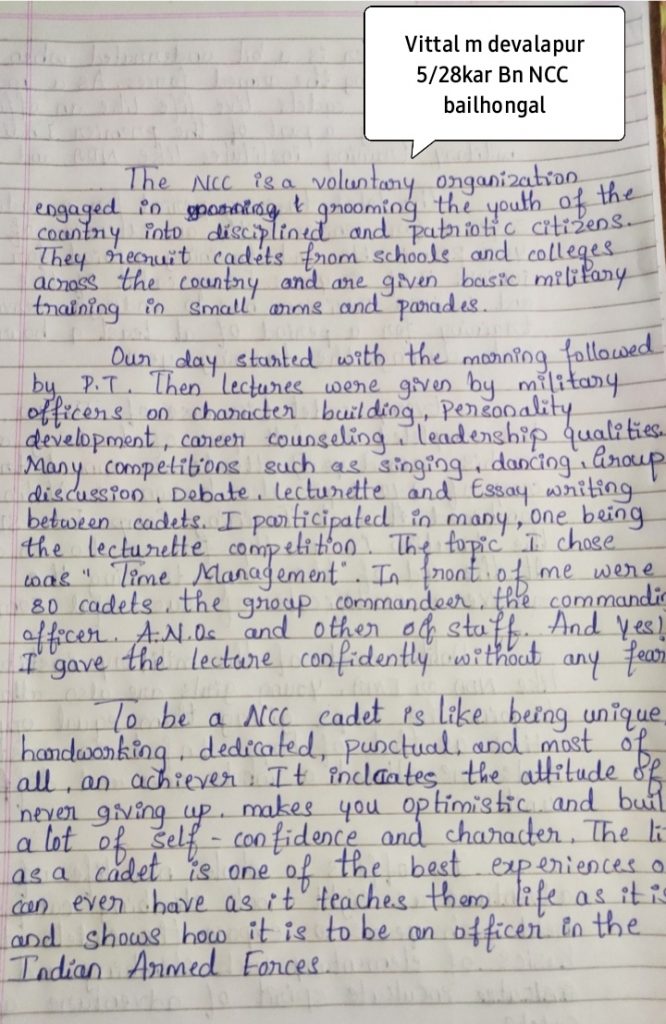 Vittal m devalapur
5/28kar Bn NCC
bailhongal
The NCC is a voluntary organization
engaged in & grooming the youth of the
country into disciplined and patriotic citizens.
They recruit cadets from schools and colleges
across the country and are given basic military
training in small arms and parades.
Our day started with the morning followed
by P.T. Then lectures were given by military
officers on character building, personality
development, career counseling, leadership qualities.
Many competitions such as singing, dancing, Group
discussion, Debate, lecturette and Essay writing
between cadets. I participated in many, one being
the lecturette competition. The topic I chose
was "Time Management". In front of me were
80 cadets, the group commandeer, the commandi
officer. A.N.Os and other of staff. And Yes!
I gave the lecture confidently without any fear
To be a NCC cadet is like being unique,
handworking, dedicated, punctual, and most of
all, an achiever. It inclaates the attitude of
never giving up. makes you optimistic and buil
a lot of self-confidence and character. The li
as a cadet is one of the best experiences o
can ever have as it teaches them life as it is
and shows how it is to be an officer in the
Indian Armed Forces.